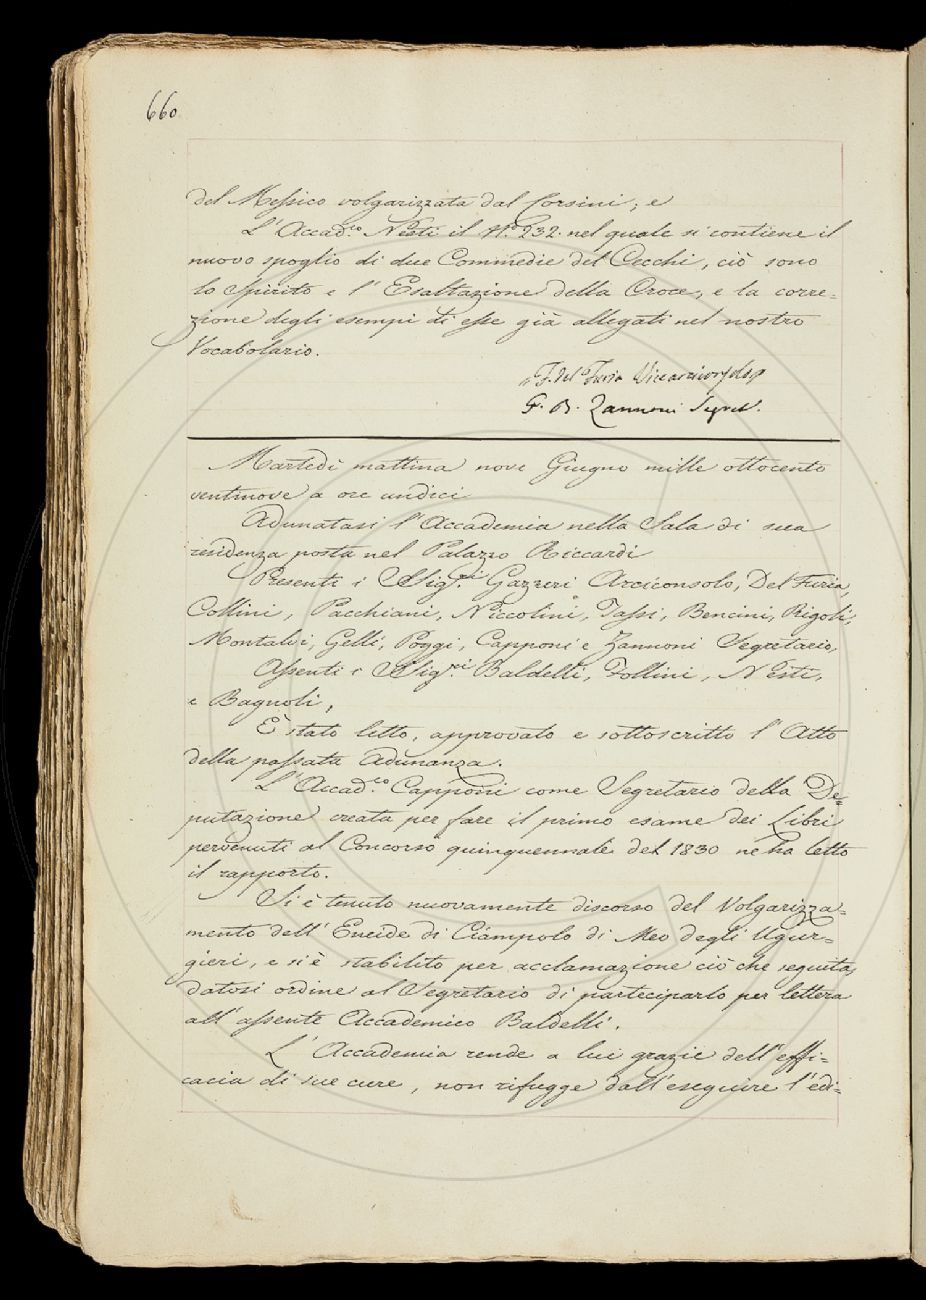 660
del Messico volgarizzata dal Corsini; e
L'Accad.co Nesti il N.o 232. nel quale si contiene il
nuovo spoglio di due Commedie del Cecchi, ciò sono
lo Spirito e l'Esaltazione della Croce, e la corre=
zione degli esempi di esse già allegati nel nostro
Vocabolario.
F. del Furia
G. B. Zannoni Segret.
Martedì mattina nove Giugno mille ottocento
ventinove a ore undici
Adunatasi l'Accademia nella Sala di sua
residenza posta nel Palazzo Riccardi
Presenti i SSig.ri Gazzeri Arciconsolo, Del Furia,
Collini, Pacchiani, Niccolini, Tassi, Bencini, Rigoli,
Montalvi, Gelli, Poggi, Capponi e Zannoni Segretario,
Assenti i SSig.ri Baldelli, Follini, Nesti,
e Bagnoli,
È stato letto, approvato e sottoscritto l'Atto
della passata Adunanza.
L'Accad.co Capponi come Segretario della De=
putazione creata per fare il primo esame dei Libri
pervenuti al Concorso quinquennale del 1830 ne ha letto
il rapporto.
Si è tenuto nuovamente discorso del Volgarizza=
mento dell'Eneide di Ciampolo di Meo degli Ugur=
gieri, e si è stabilito per acclamazione ciò che seguita,
datosi ordine al Segretario di parteciparlo per lettera
all'assente Accademico Baldelli.
L'Accademia rende a lui grazie dell'effi=
cacia di sue cure, non rifugge dall'eseguire l'edi=